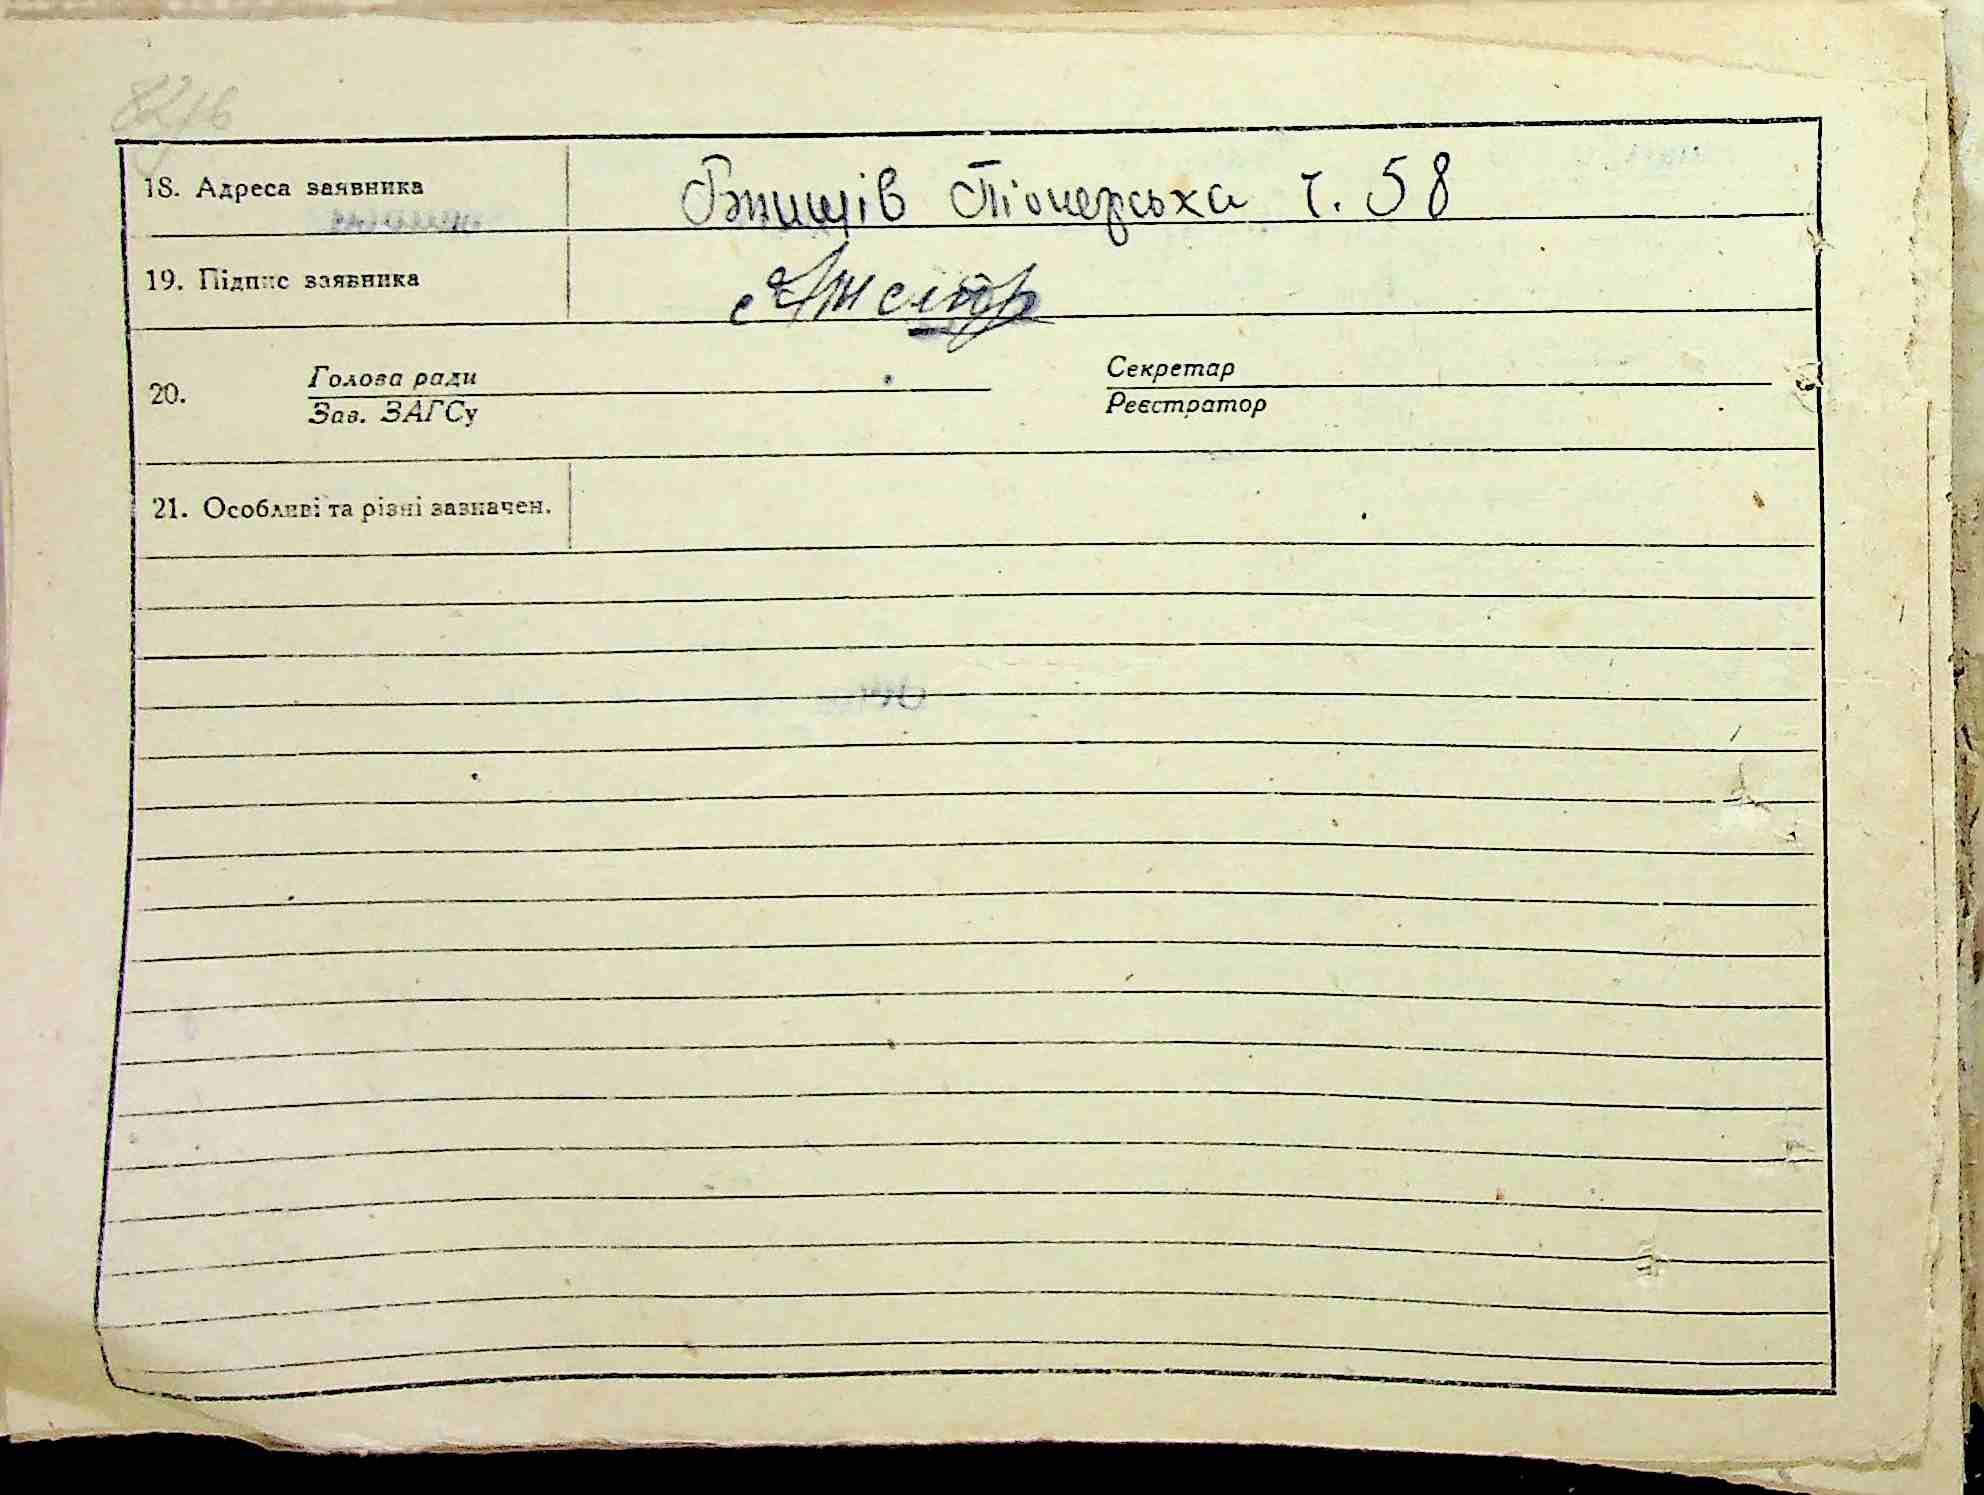 18. Адреса заявника Піонерська ч. 58
19. Підпис заявника
20. Голова ради Секретар
Зав. ЗАГСу Реєстратор
21. Особливі та різні зазначен.